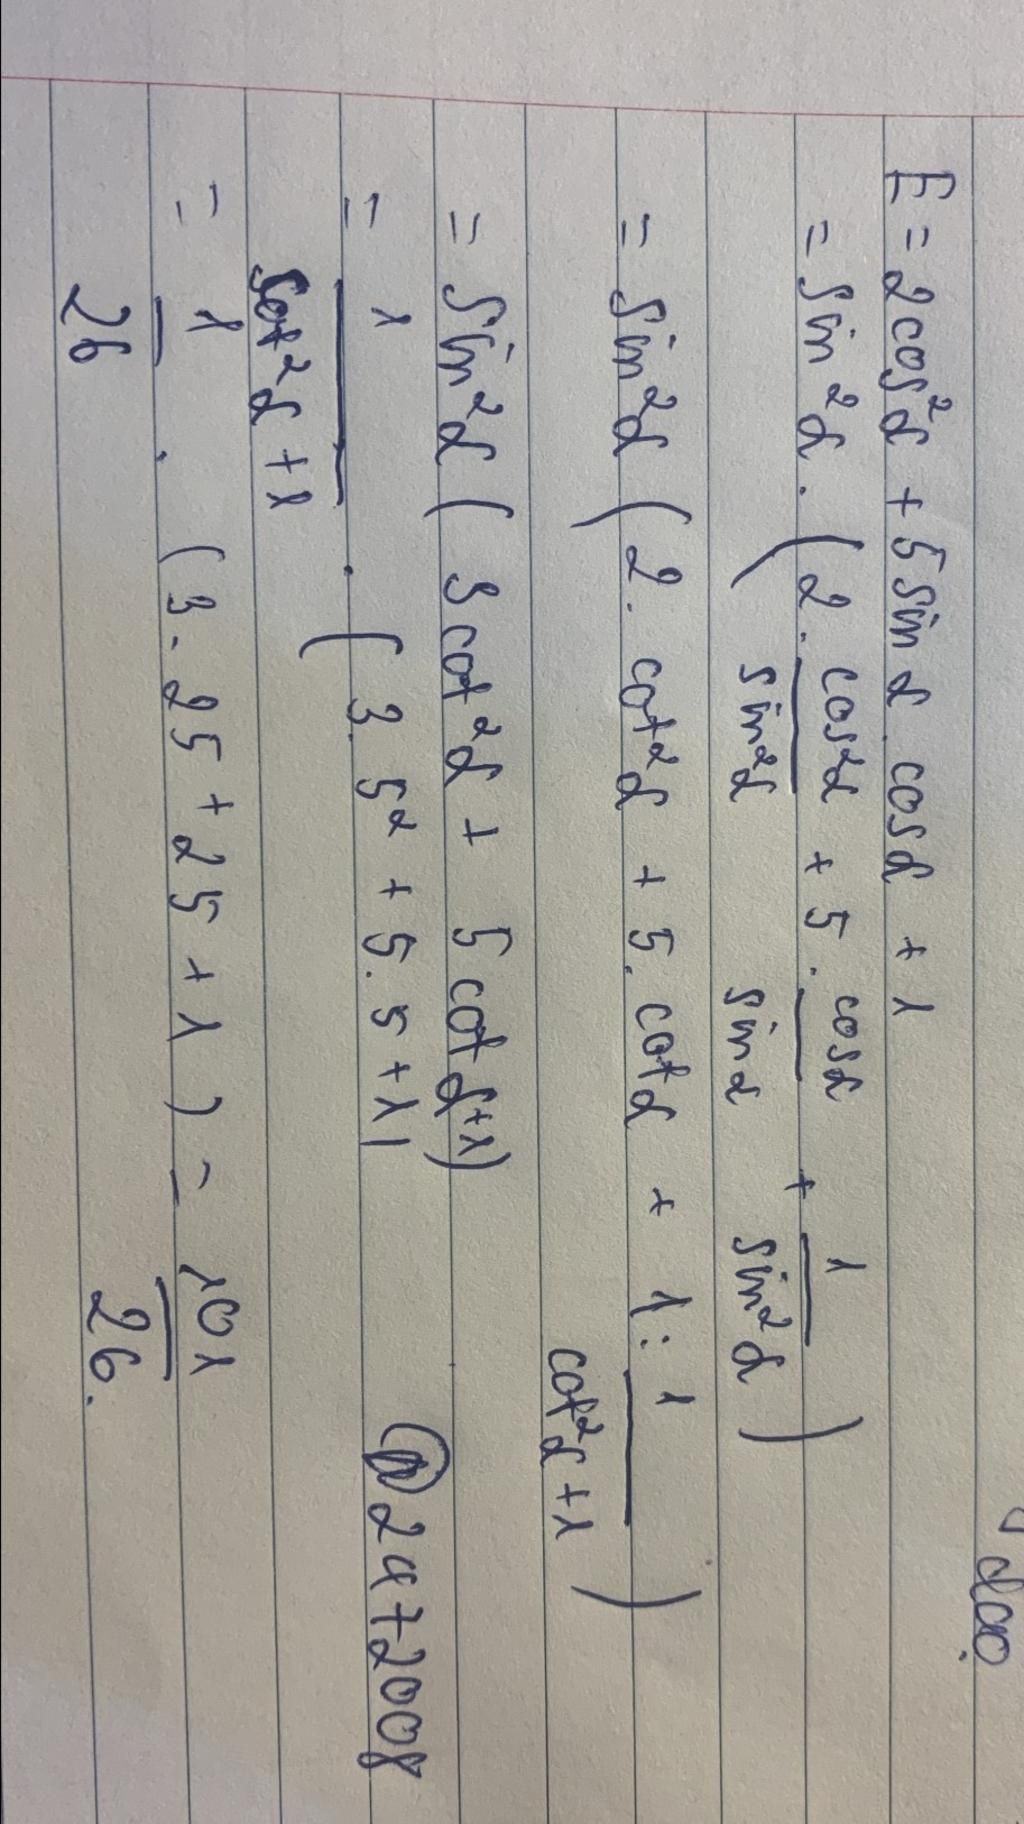 đào
E = 2cos²α + 5 sin α . cos α + 1
= sin²α . ( 2 . cos²α/sin²α + 5 . cosα/sin α + 1/sin²α )
= sin²α ( 2 . cot²α + 5 . cotα + 1 : 1/cot²α + 1 )
= sin²α ( 3 cot²α + 5 cot α + 1 )
= 1/cot²α + 1 . ( 3 . 5² + 5 . 5 + 1 )
= 1/26 . ( 3 . 25 + 25 + 1 ) = 101/26 .